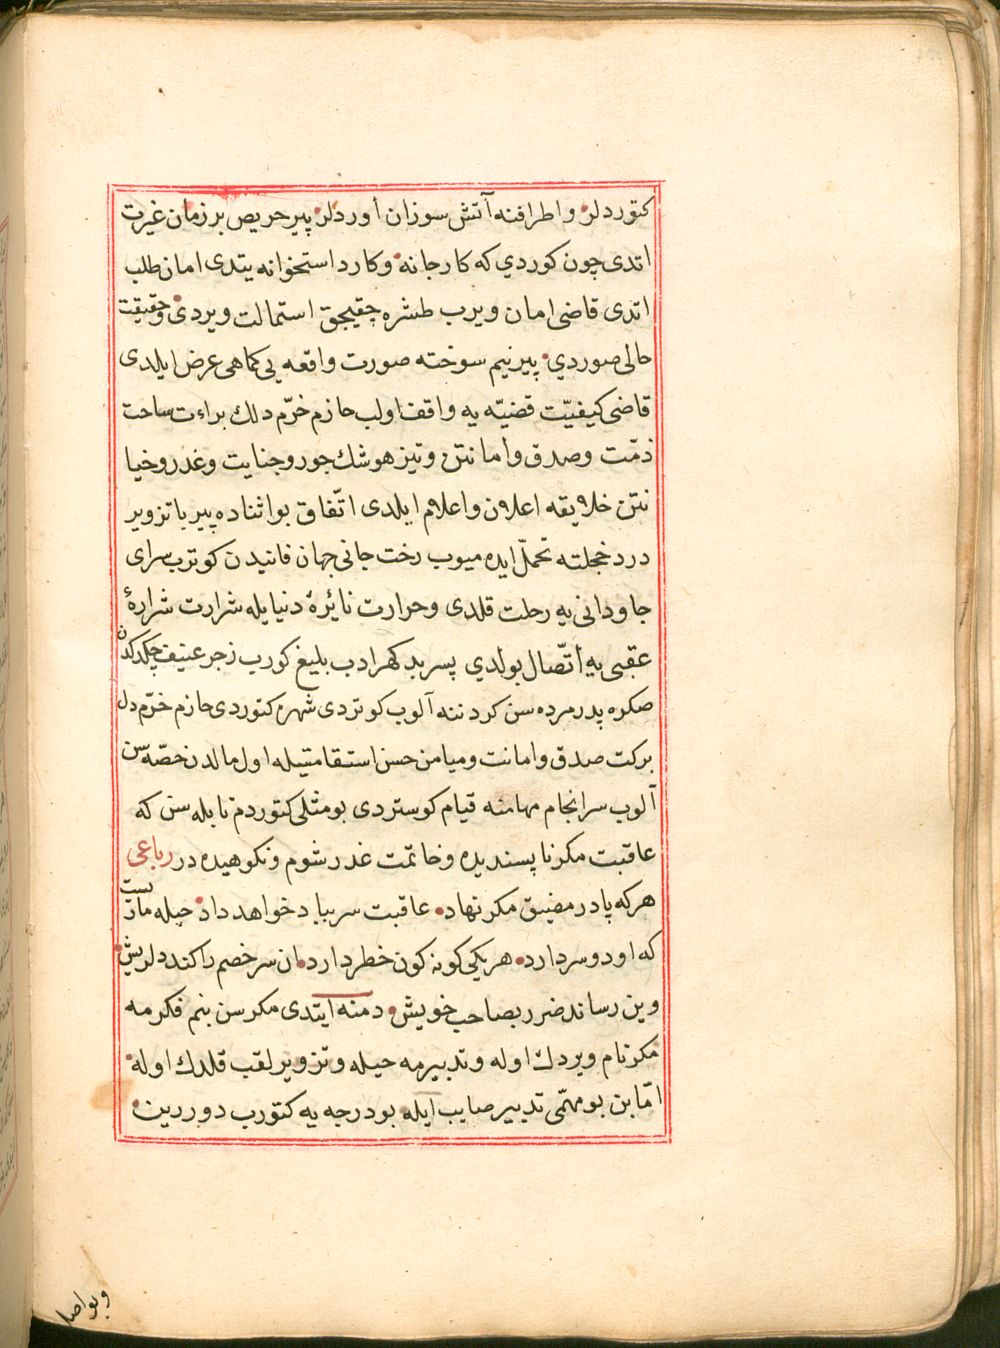 كتوردلر واطرافنه آتش سوزان اوردلر پیر حریص بر زمان غیرت
اتدی چون كوردي كه كار جانه وكارد استخوانه یتدی امان طلب
اتدی قاضی امان ویرب طشره چقیجق استمالت ویردی وحقیقت
حالی صوردي پیر نیم سوخته صورت واقعه یی كماهی عرض ایلدی
قاضی كیفیّت قضیّه یه واقف اولب حازم خرّم دلك براءت ساحت
ذمّت وصدق وامانتن وتیزهوشك جور وجنایت وغدر وخیا
نتن خلایقه اعلان واعلام ایلدی اتّفاق بو اثناده پیر با تزویر
درد خجلته تحمّل ایده میوب رخت جانی جهان فانیدن كوترب سرای
جاودانی یه رحلت قلدی وحرارت نائرهٔ دنیا یله شرارت شرارهٔ
عقبی یه اتّصال بولدي پسر بد كهر ادب بلیغ كورب زجر عنیف چكدكدن
صكره پدر مرده سن كردننه آلوب كوتردی شهره كتوردی حازم خرّم دل
بركت صدق وامانت ومیامن حسن استقامتیله اول مالدن حصّه سن
آلوب سرانجام مهامنه قیام كوستردی بو مثلی كتوردم تا بله سن كه
عاقبت مكر ناپسندیده وخاتمت غدر شوم ونكوهیده در رباعی
هركه پا در مضیق مكر نهاد عاقبت سر بباد خواهد داد حیله ماریست
كه او دو سر دارد هر یكی كونه كون خطر دارد ان سر خصم را كند دلریش
وین رساند ضرر بصاحب خویش دمنه ایتدی مكر سن بنم فكرمه
مكر نام ویردك اوله وتدبیرمه حیله وتزویر لقب قلدك اوله
امّا بن بو مهمّی تدبیر صایب ایله بو درجه یه كتورب دوررین
وبو اصل